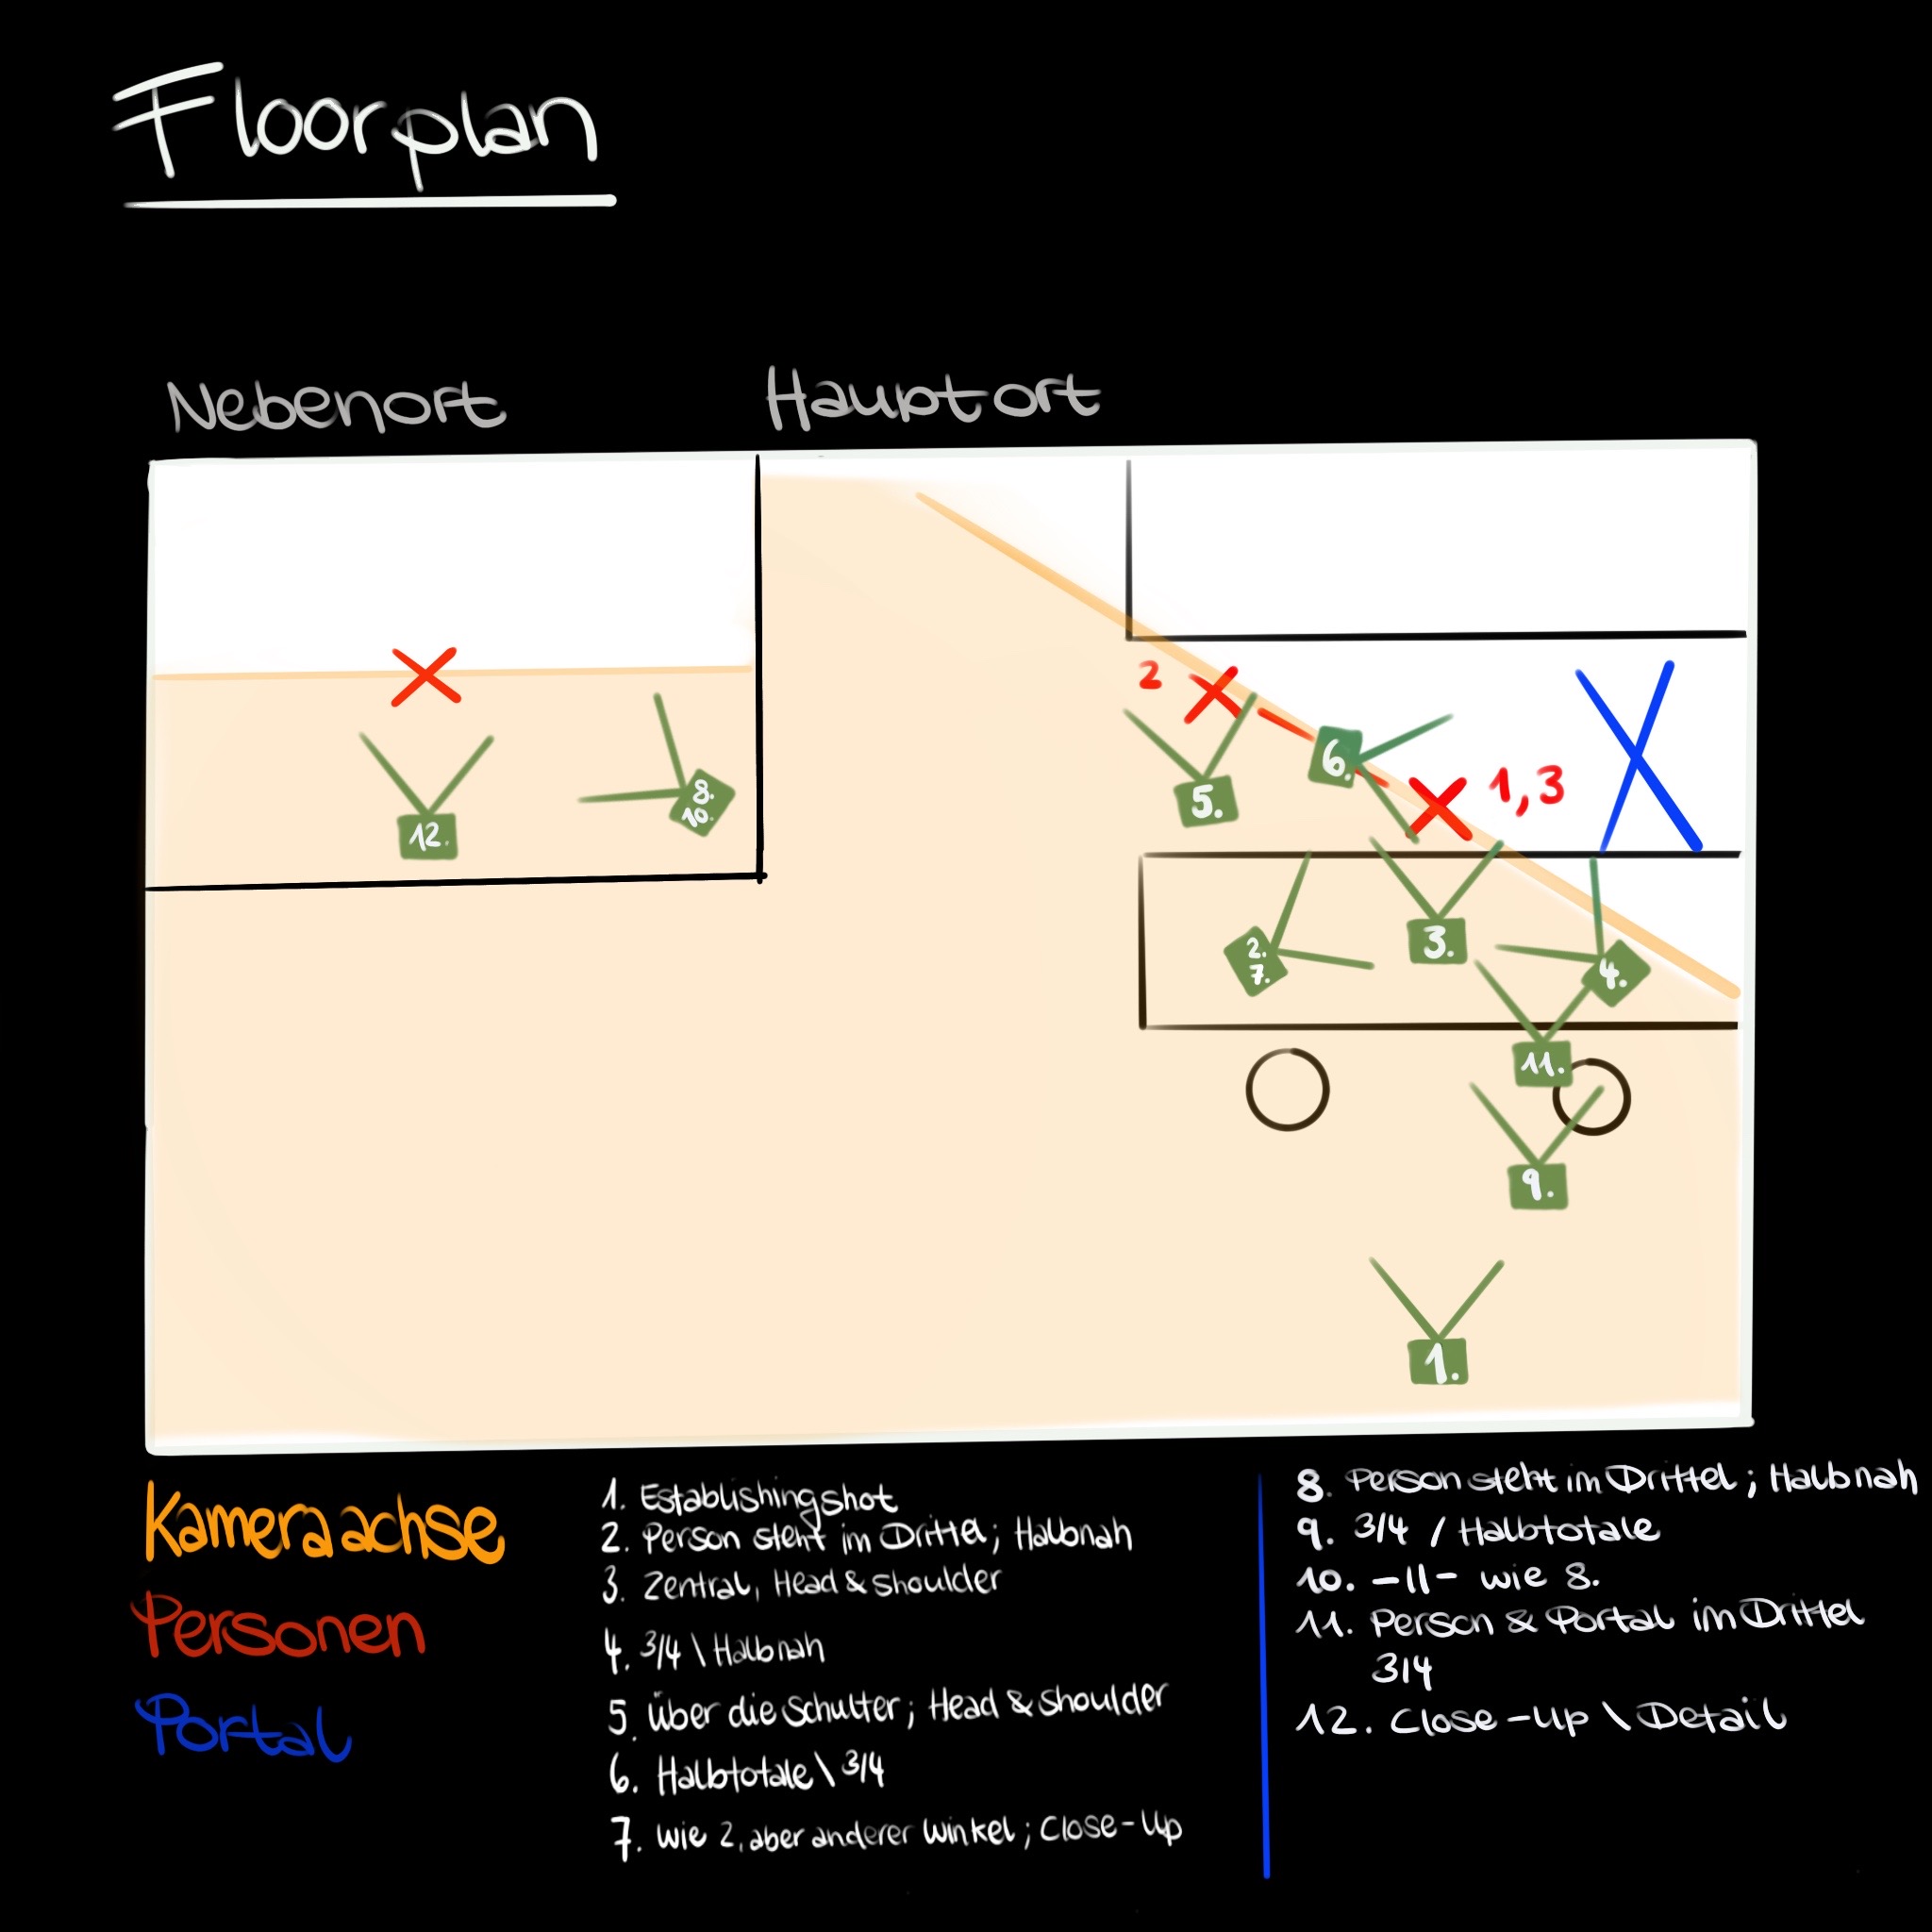 Floorplan
Nebenort
Hauptort
2
6.
1,3
5.
8.
10.
12.
2.
7.
3.
4.
11.
9.
1.
Kameraachse
Personen
Portal
1. Establishingshot
2. Person steht im Drittel; Halbnah
3. Zentral, Head & Shoulder
4. 3/4 \ Halbnah
5. über die Schulter; Head & Shoulder
6. Halbtotale \ 3/4
7. wie 2, aber anderer Winkel; Close-Up
8. Person steht im Drittel; Halbnah
9. 3/4 / Halbtotale
10. -11- wie 8.
11. Person & Portal im Drittel
3/4
12. Close-Up \ Detail